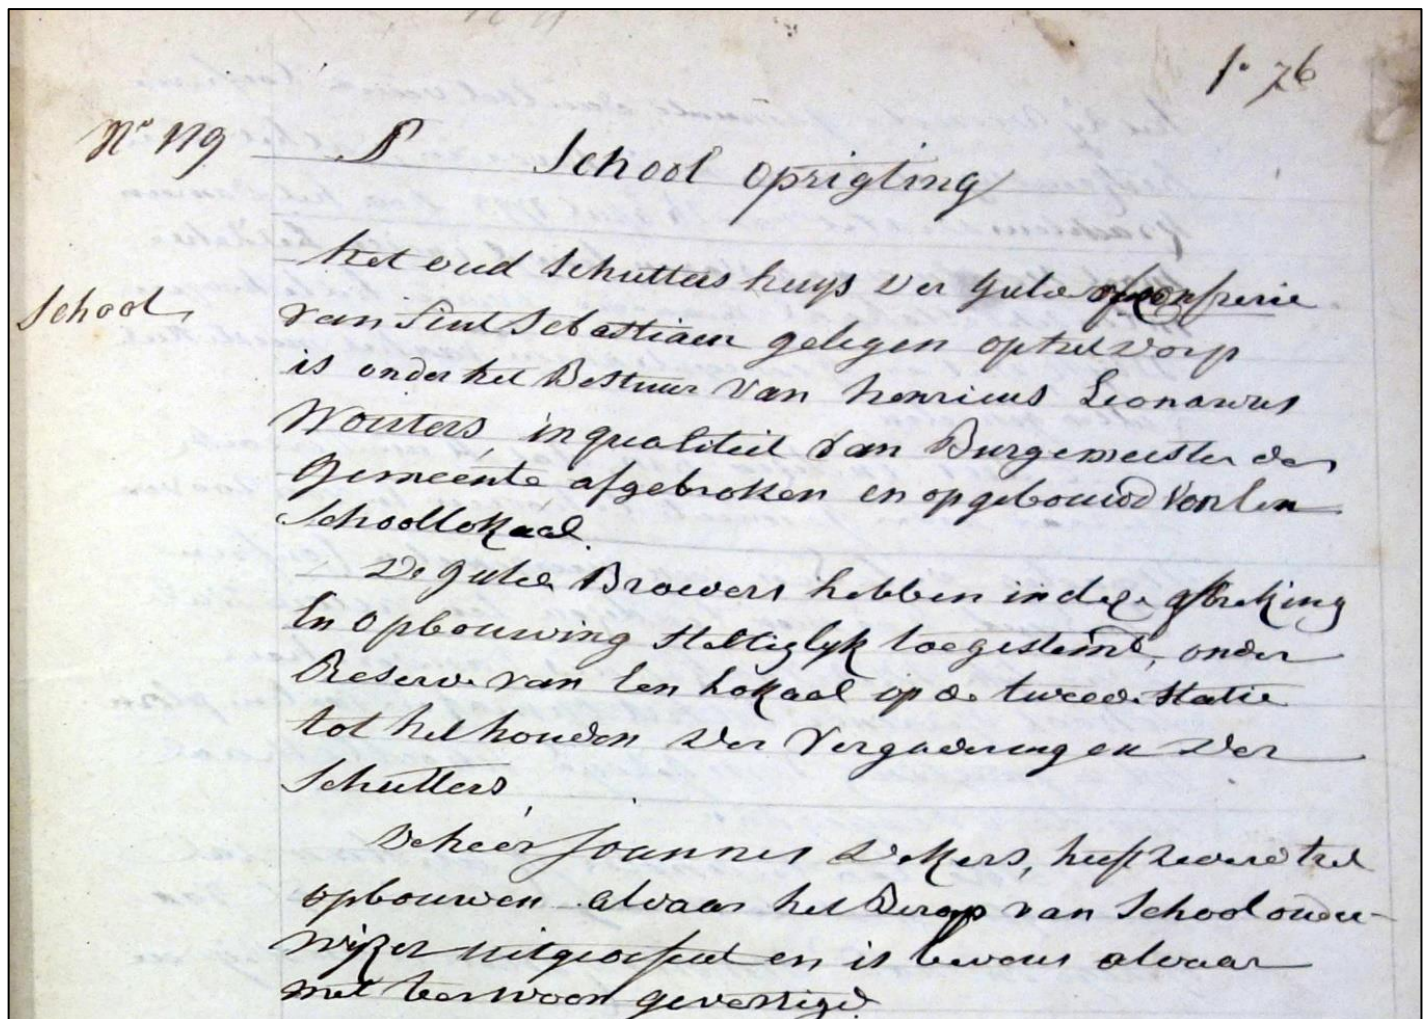 f° 76
N° 119 School oprigting
het oud Schutters huys der gulde confrerie
School
van Sint Sebastiaen gelegen op het dorp
is onder het Bestuur van henricus Leonardus
Wouters, in qualiteit van Burgemeester der
gemeente afgebroken en opgebouwd voor een
Schoollokaal.
De gulde Broeders hebben in deze afbreking
en opbouwing stelliglyk toegestemd, onder
Reserve van een lokaal op de tweede statie
tot het houden der vergaderingen der
Schutters
De heer Joannes Dekers, heeft het
opbouwen aldaar het Beroep van School onder-
wijzer uitgeoefend en is tevens aldaar
met ter woon gevestigd.